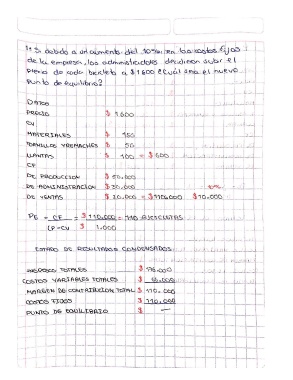 1: Si debido a un aumento del 10% en los costos fijos
de la empresa, los administradores decidieron subir el
precio de cada bicicleta a $1600 ¿Cuál sería el nuevo
punto de equilibrio?
DATOS
PRECIO $ 1600
CV
MATERIALES $ 450
TORNILLOS Y REMACHES $ 50
LLANTAS $ 100 = $ 600
CF
DE PRODUCCION $ 50.000
DE ADMINISTRACION $ 30.000 10%
DE VENTAS $ 20.000 = $ 100.000 $10.000
PE = CF = $ 110.000 = 110 BICICLETAS
(P-CV $ 1.000
ESTADO DE RESULTADOS CONDENSADOS
INGRESOS TOTALES $ 176.000
COSTOS VARIABLES TOTALES $ 66.000
MARGEN DE CONTRIBUCION TOTAL $ 110.000
COSTOS FIJOS $ 110.000
PUNTO DE EQUILIBRIO $ —